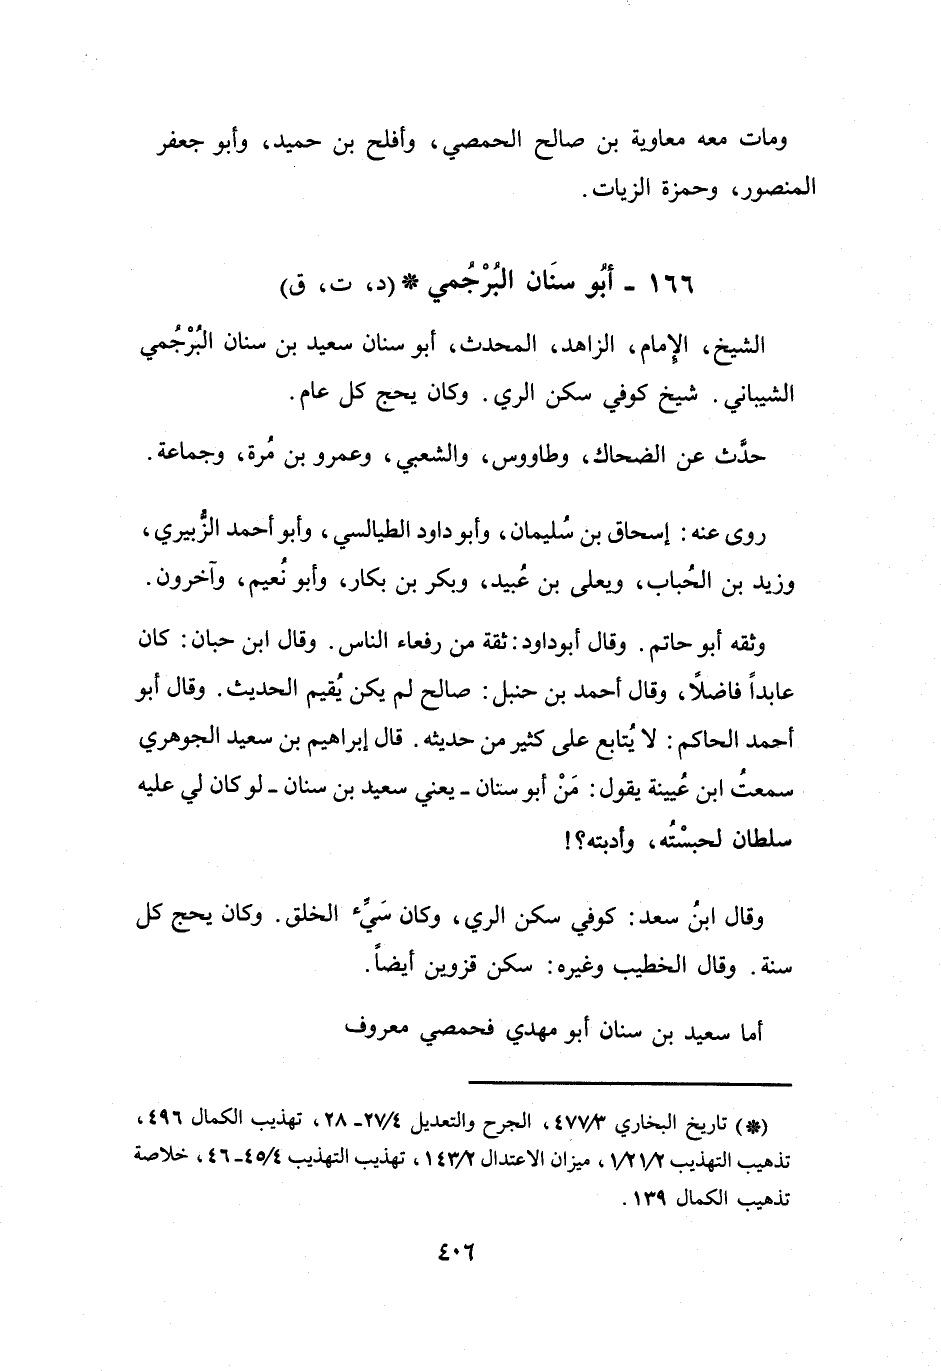 ومات معه معاوية بن صالح الحمصي، وأفلح بن حميد، وأبو جعفر
المنصور، وحمزة الزيات.
١٦٦ - أبُو سنَان البُرْجُمي * (د، ت، ق)
الشيخ، الإمام، الزاهد، المحدث، أبو سنان سعيد بن سنان البُرْجُمي
الشيباني. شيخ كوفي سكن الري. وكان يحج كل عام.
حدَّث عن الضحاك، وطاووس، والشعبي، وعمرو بن مُرة، وجماعة.
روى عنه: إسحاق بن سُليمان، وأبو داود الطيالسي، وأبو أحمد الزُّبيري،
وزيد بن الحُباب، ويعلى بن عُبيد، وبكر بن بكار، وأبو نُعيم، وآخرون.
وثقه أبو حاتم. وقال أبوداود: ثقة من رفعاء الناس. وقال ابن حبان: كان
عابداً فاضلًا، وقال أحمد بن حنبل: صالح لم يكن يُقيم الحديث. وقال أبو
أحمد الحاكم: لا يُتابع على كثير من حديثه. قال إبراهيم بن سعيد الجوهري
سمعتُ ابن عُيينة يقول: مَنْ أبو سنان - يعني سعيد بن سنان - لو كان لي عليه
سلطان لحبسْتُه، وأدبته؟!
وقال ابنُ سعد: كوفي سكن الري، وكان سَيِّء الخلق. وكان يحج كل
سنة. وقال الخطيب وغيره: سكن قزوين أيضاً.
أما سعيد بن سنان أبو مهدي فحمصي معروف
(*) تاريخ البخاري ٤٧٧/٣، الجرح والتعديل ٢٧/٤- ٢٨، تهذيب الكمال ٤٩٦،
تذهيب التهذيب ١/٢١/٢، ميزان الاعتدال ١٤٣/٢، تهذيب التهذيب ٤٥/٤- ٤٦، خلاصة
تذهيب الكمال ١٣٩.
٤٠٦